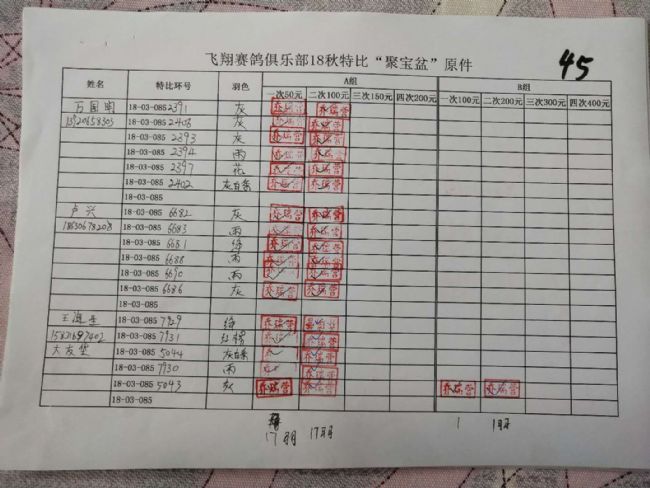 飞翔赛鸽俱乐部18秋特比“聚宝盆”原件
45
姓名 特比环号 羽色 A组 B组
一次50元 二次100元 三次150元 四次200元 一次100元 二次200元 三次300元 四次400元
18-03-085 2391 灰 乔瑞营 乔瑞营
18-03-085 2408 灰 乔瑞营 乔瑞营
18-03-085 2393 灰 乔瑞营 乔瑞营
18-03-085 2394 雨 乔瑞营 乔瑞营
18-03-085 2397 花 乔瑞营 乔瑞营
18-03-085 2402 灰白条 乔瑞营 乔瑞营
18-03-085
卢兴 18-03-085 6682 灰 乔瑞营 乔瑞营
18-03-085 6683 雨 乔瑞营 乔瑞营
18-03-085 6681 绛 乔瑞营 乔瑞营
18-03-085 6688 雨 乔瑞营 乔瑞营
18-03-085 6690 雨 乔瑞营 乔瑞营
18-03-085 6686 灰 乔瑞营 乔瑞营
18-03-085
18-03-085 7929 绛 乔瑞营
18-03-085 7931 红 乔瑞营 乔瑞营
18-03-085 5044 灰白条 乔瑞营
18-03-085 7930 雨 乔瑞营
18-03-085 5043 灰 乔瑞营 乔瑞营 乔瑞营 乔瑞营
18-03-085
17羽 17羽 1 1羽